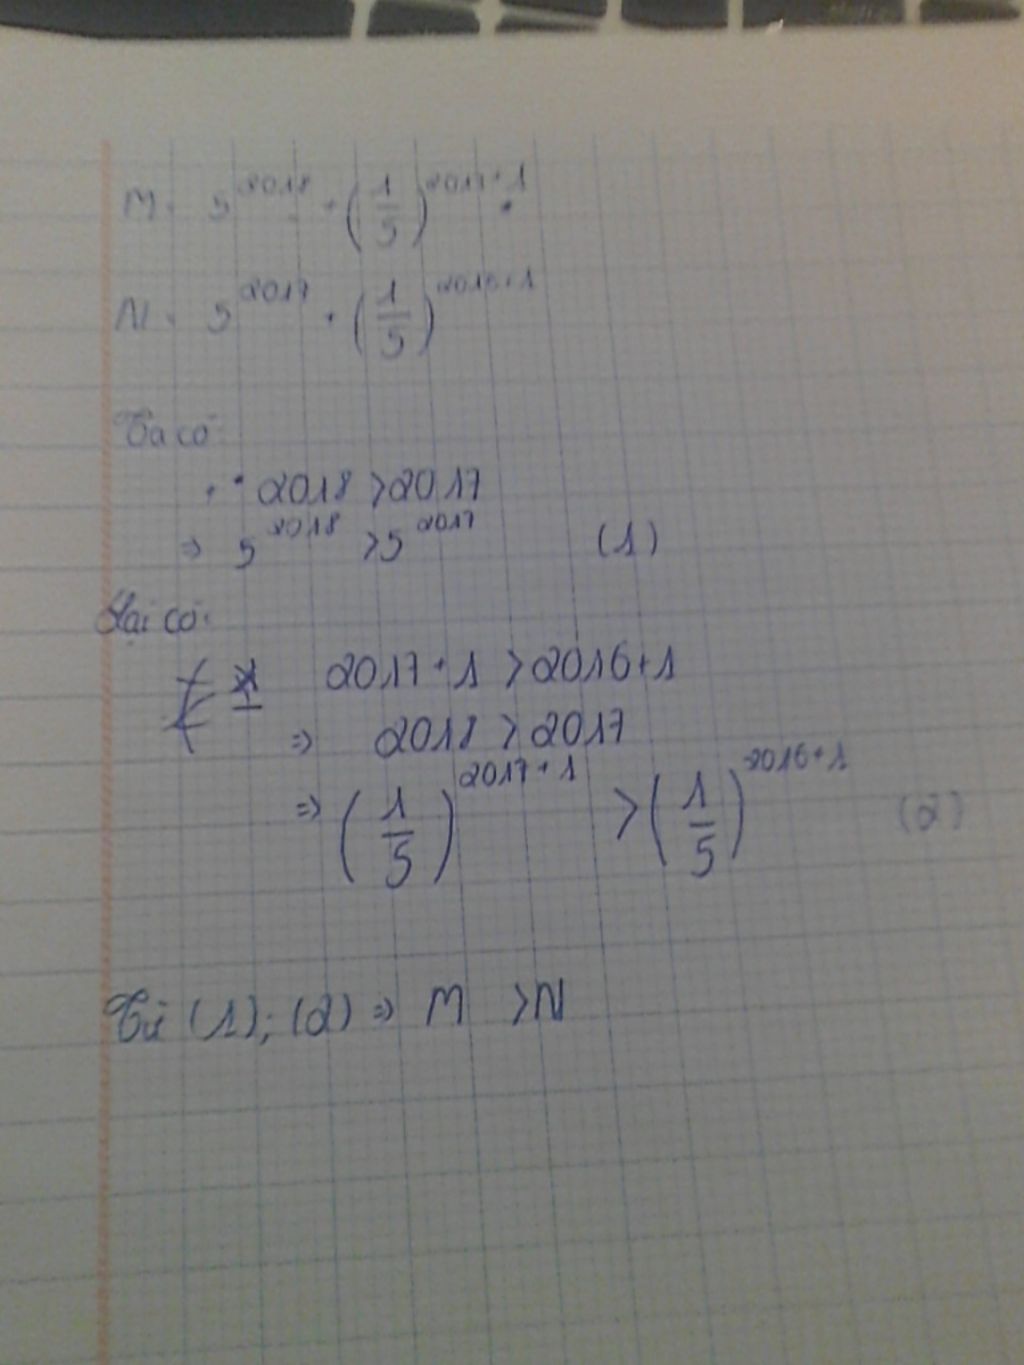 M = 5^2018 . (1/5)^2017+1
N = 5^2017 . (1/5)^2016+1
Ta có:
2018 > 2017
=> 5^2018 > 5^2017 (1)
Lại có:
2017+1 > 2016+1
=> 2018 > 2017
=> (1/5)^2017+1 > (1/5)^2016+1 (2)
Từ (1); (2) => M > N